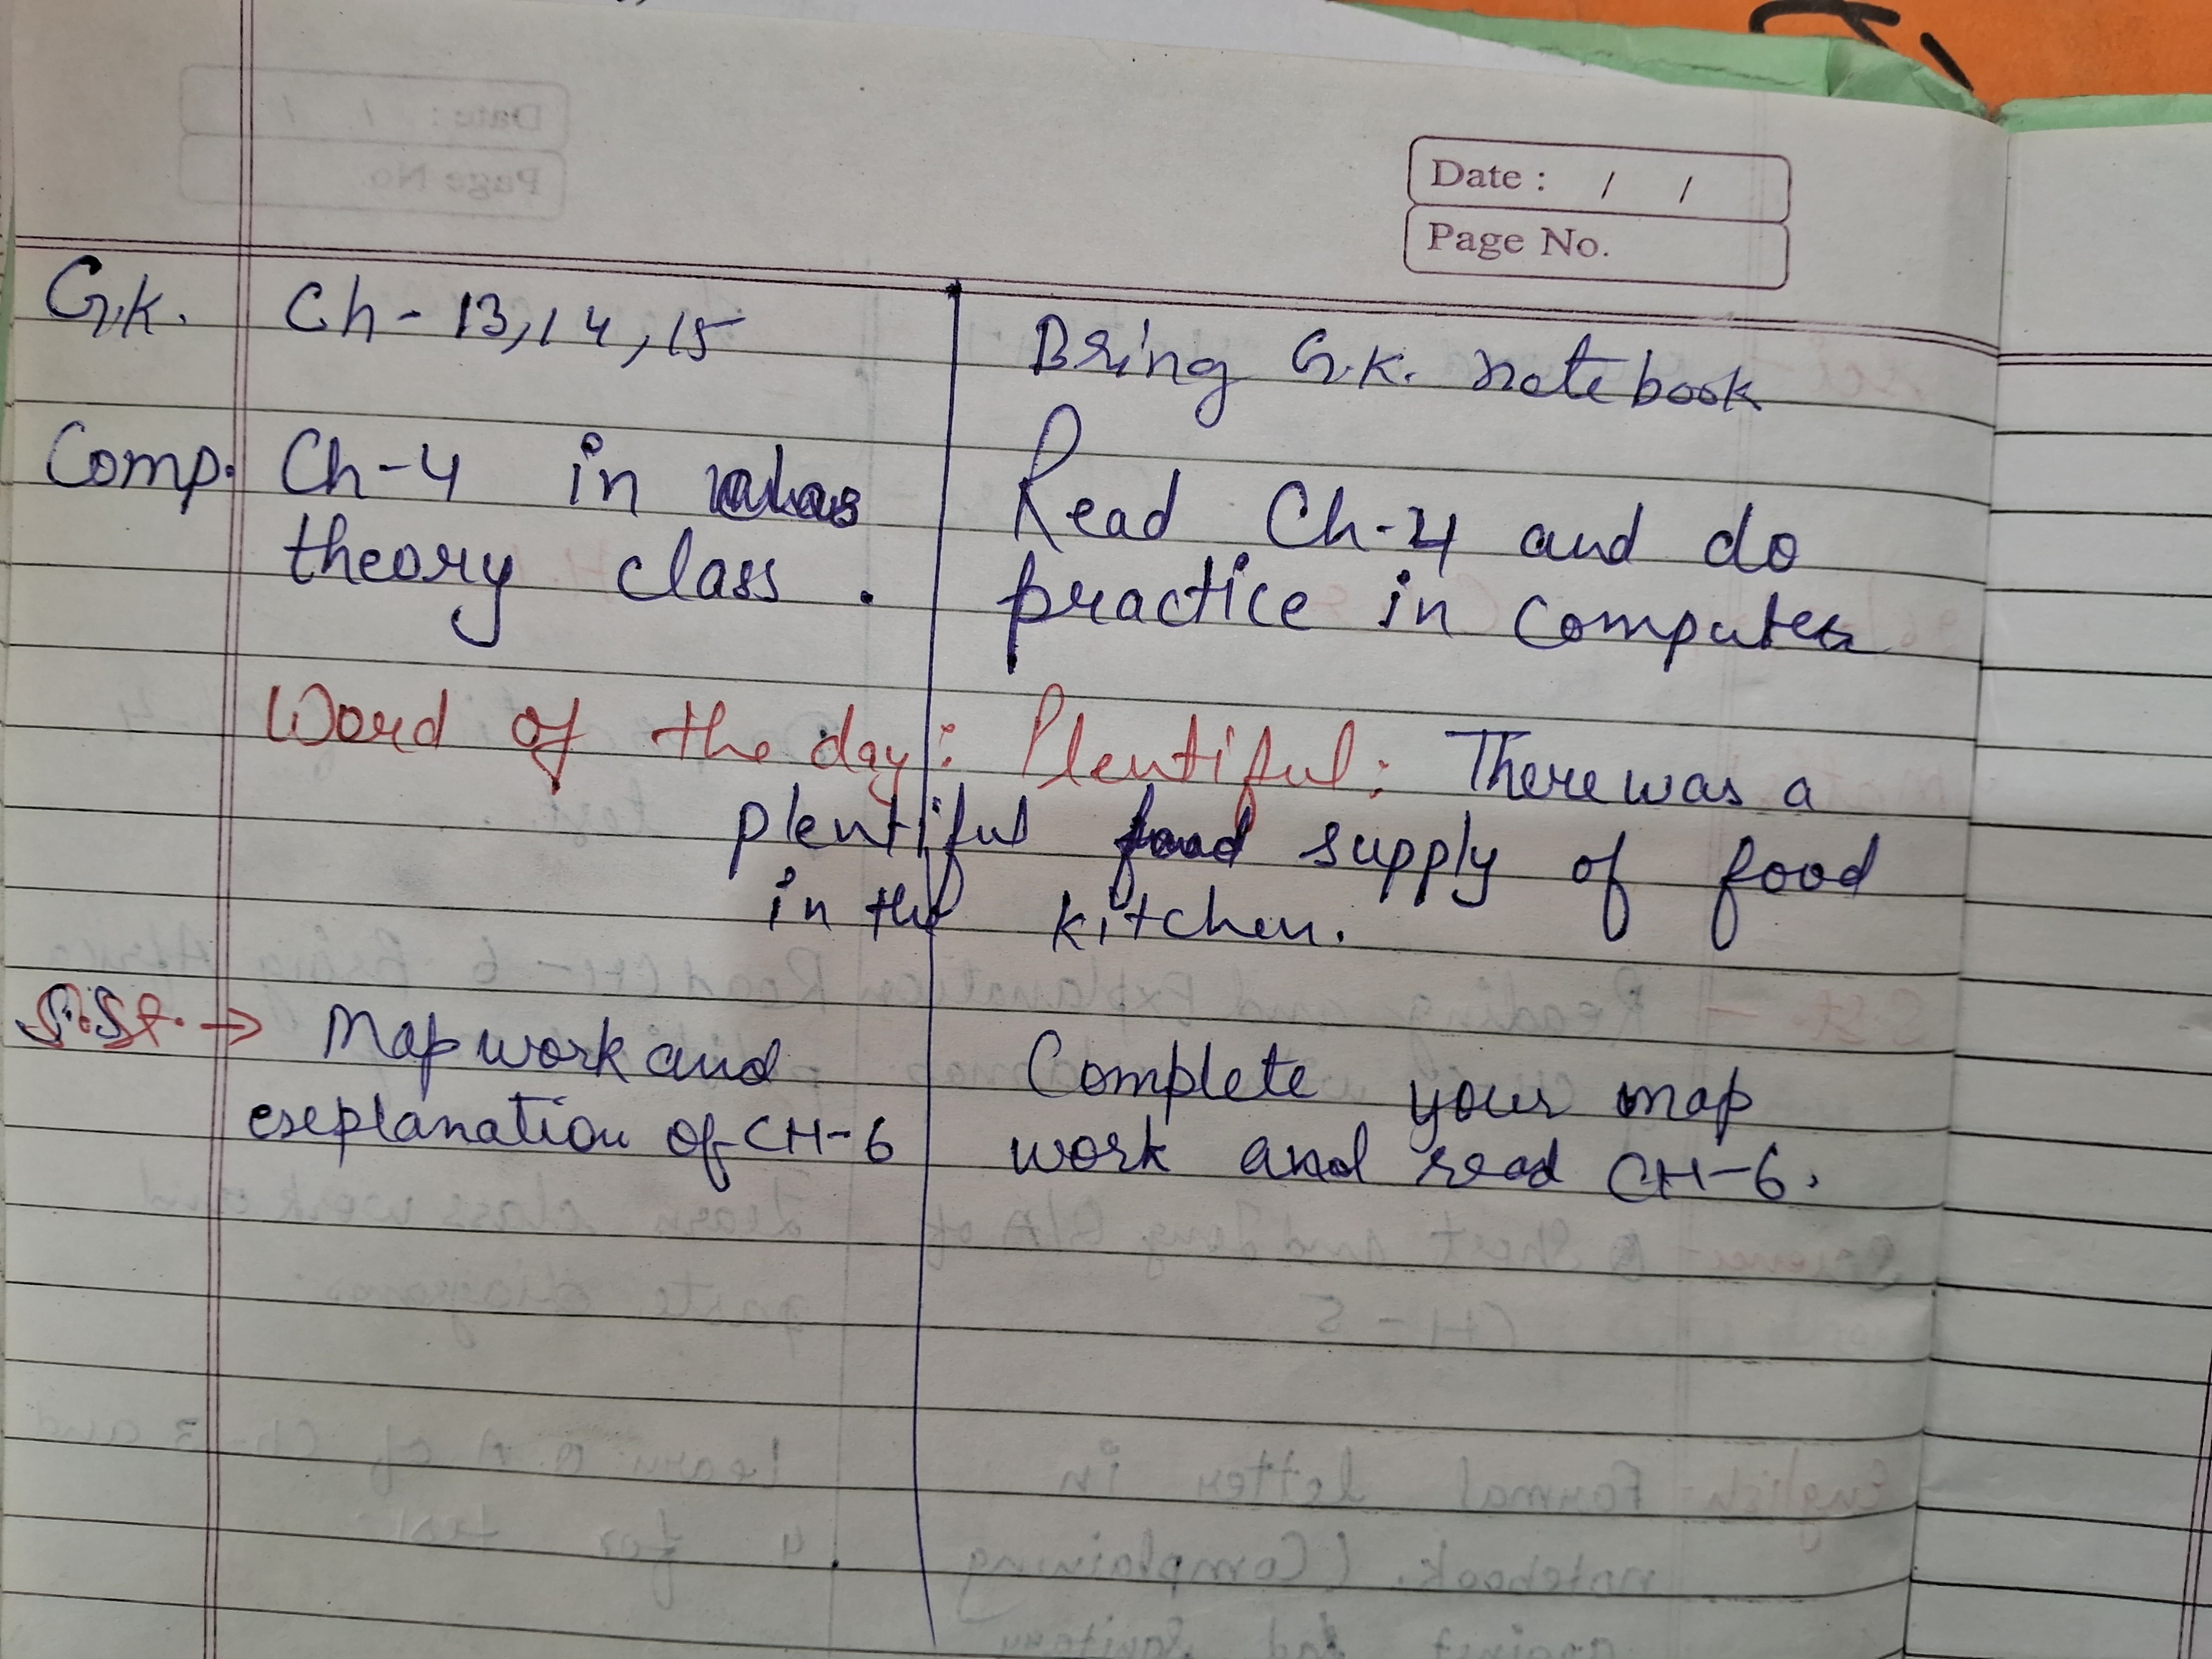 Date : / /
Page No.
G.K. Ch - 13, 14, 15 Bring G.K. notebook
Comp. Ch-4 in Read Ch-4 and do
theory class . practice in Computer
Word of the day: Plentiful: There was a
plentiful supply of food
in the kitchen.
S.St. → Map work and Complete your map
explanation of CH-6 work and read CH-6.